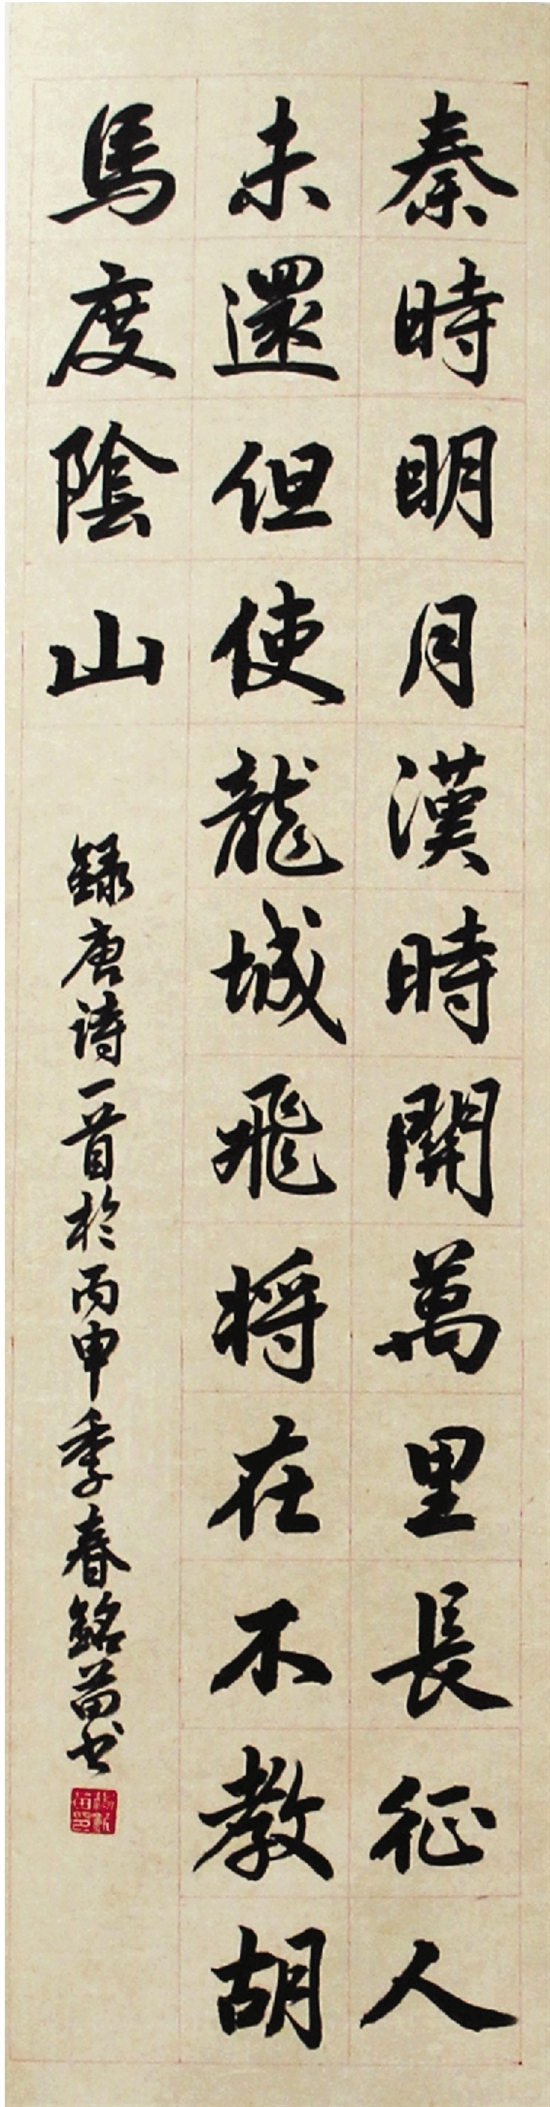 秦時明月漢時開萬里長征人
未還但使龍城飛将在不教胡
馬度陰山
録唐詩一首於丙申季春銘苗书